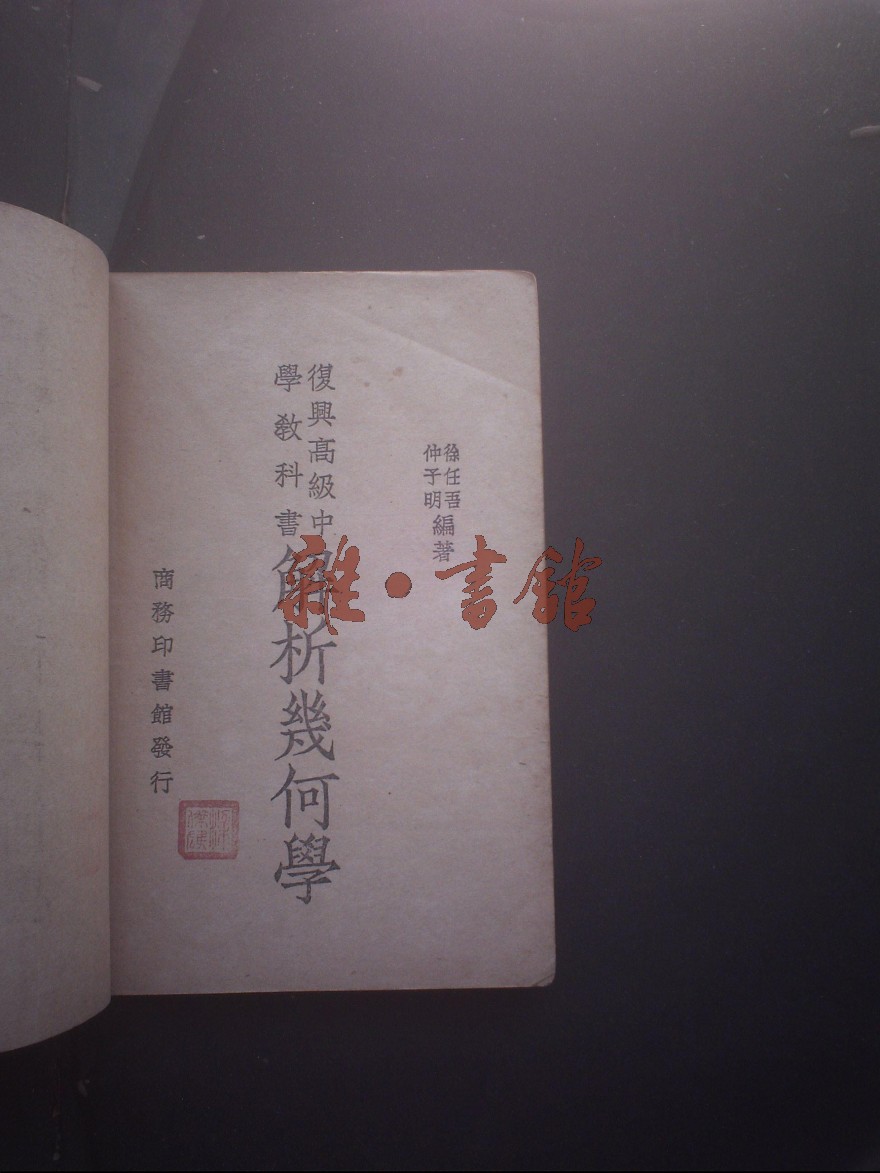 徐任吾
仲子明
編著
復興高級中
學教科書
解析幾何學
商務印書館發行
雜·書館